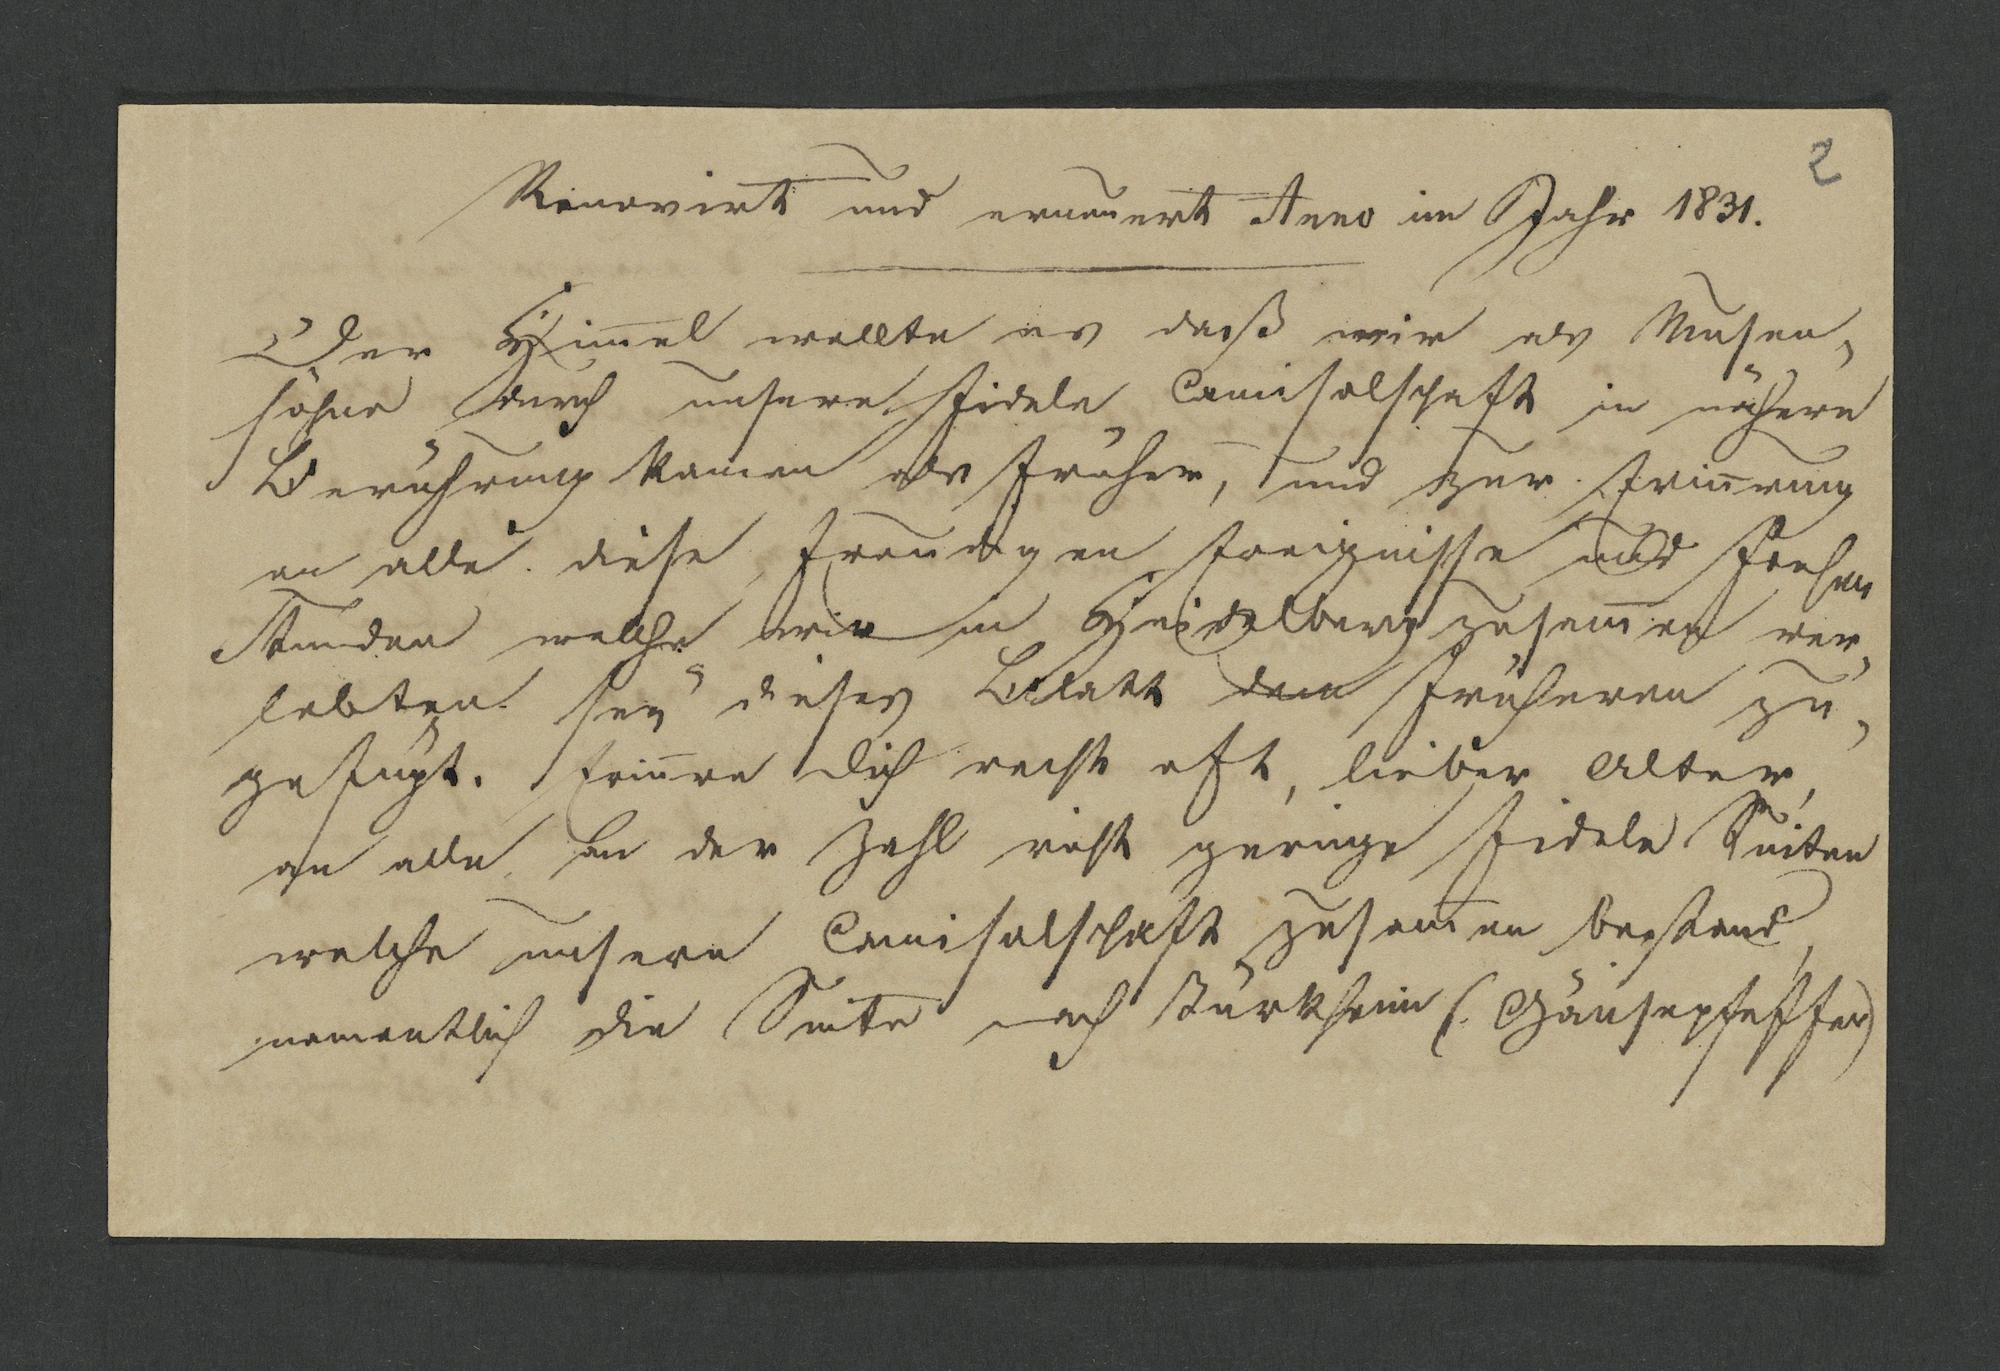 2
Renovirt und erneuert Anno im Jahr 1831.
Der Him̄el wollte es daß wir als Musen,
söhne durch unsere fidele Camisolschaft in nähere
Berührung kamen als früher, und zur Erin̄rung
an alle diese freudigen Ereignisse und frohen
Stunden welche wir in Heidelberg zusam̄en ver,
lebten sey dieses Blatt dem früheren zu,
gefügt. Erin̄re dich recht oft, lieber Alter,
an alle an der Zahl nicht geringe fidele Suiten
welche unsere Camisolschaft zusam̄en bestand,
namentlich die Suite nach Türkheim (. Gänsepfeffer)